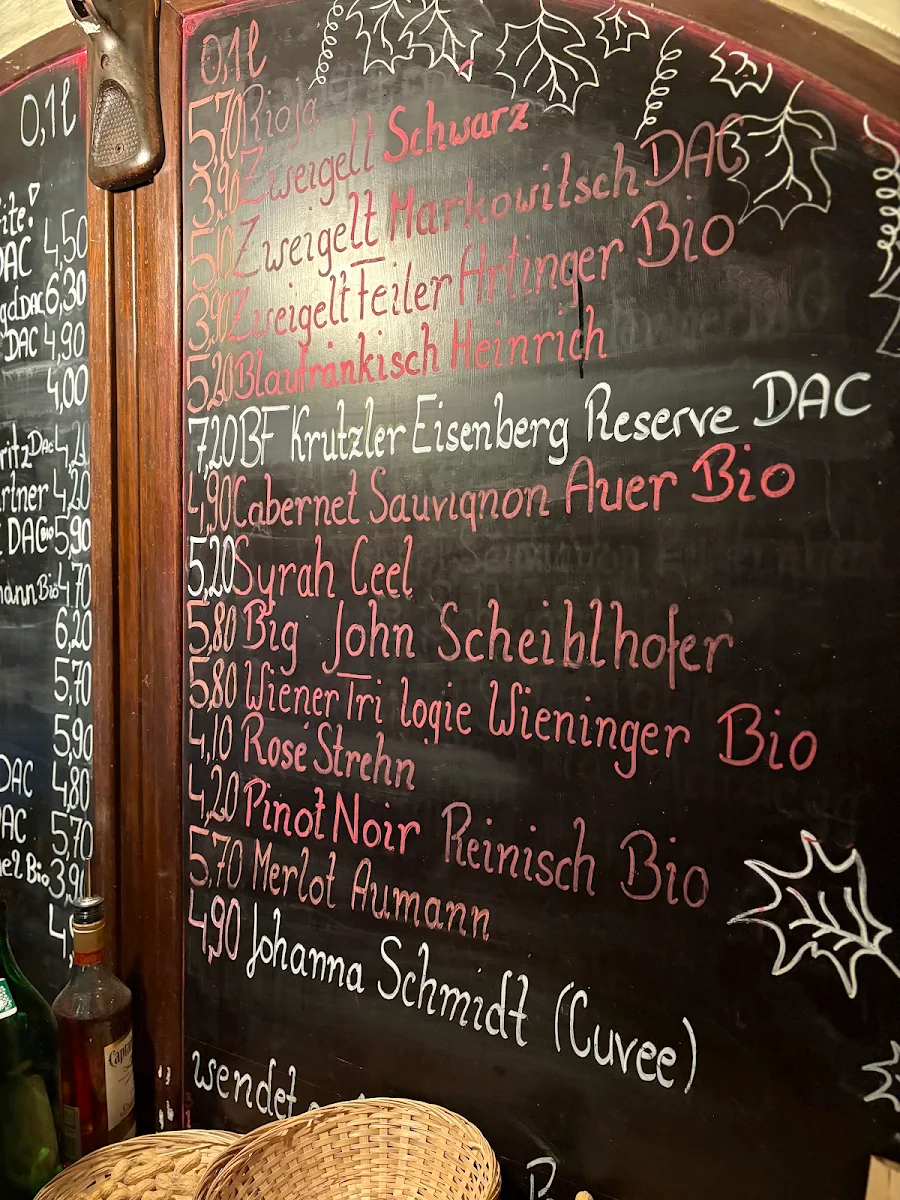 0,1l
DAC 4,50
DAC 6,30
DAC 4,90
4,00
DAC
4,20
DAC Bio 5,90
Bio 4,70
6,20
5,70
5,90
DAC 4,80
5,70
Bio 3,90
0,1l
5,70 Rioja
3,90 Zweigelt Schwarz
5,10 Zweigelt Markowitsch DAC
3,90 Zweigelt Feiler Artinger Bio
5,20 Blaufränkisch Heinrich
7,20 BF Krutzler Eisenberg Reserve DAC
4,90 Cabernet Sauvignon Auer Bio
5,20 Syrah Ceel
5,80 Big John Scheiblhofer
5,80 Wiener Tri logie Wieninger Bio
4,10 Rosé Strehn
4,20 Pinot Noir Reinisch Bio
5,70 Merlot Aumann
4,90 Johanna Schmidt (Cuvee)
wendet